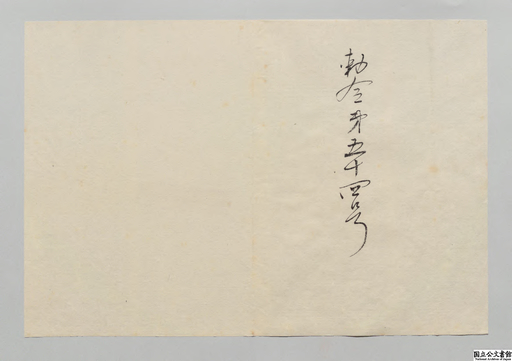 勅令第五十四号
国立公文書館
National Archives of Japan